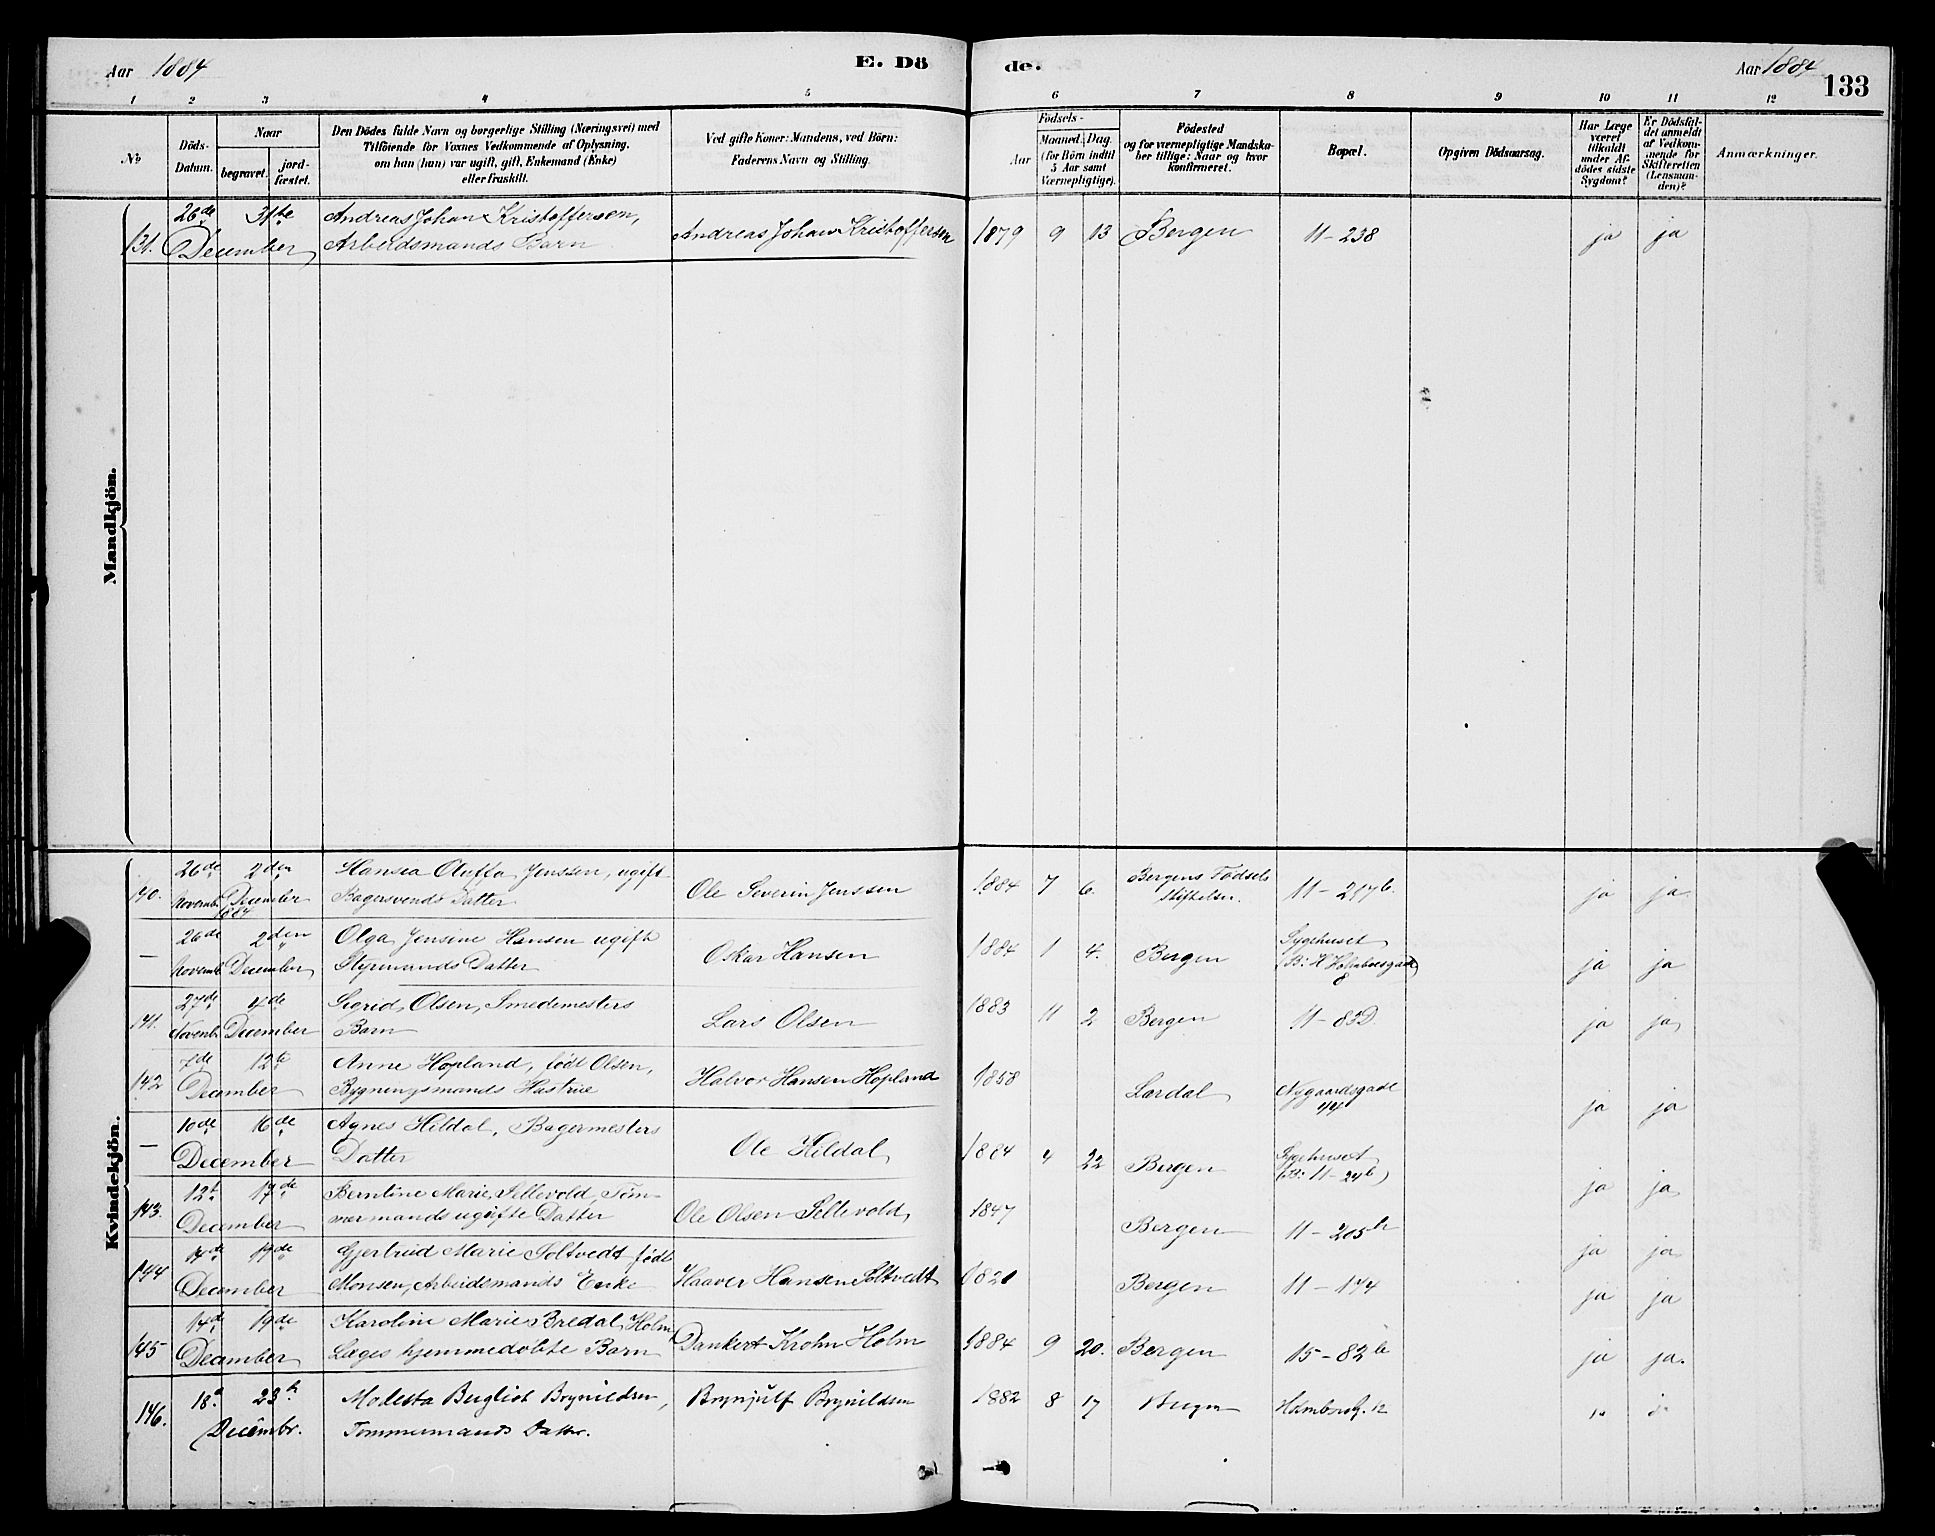 Aar 1884 E. Dö de. Aar 1884 133
1 2 3 4 5 6 7 8 9 10 11 12
No
Döds-Datum.
Naar
begravet.
jord-fæstet.
Den Dödes fulde Navn og borgerlige Stilling (Næringsvei) med
Tilföiende for Voxnes Vedkommende af Oplysning,
om han (hun) var ugift, gift, Enkemand (Enke)
eller fraskilt.
Ved gifte Koner: Mandens, ved Börn:
Faderens Navn og Stilling.
Födsels-
Aar
Maaned. Dag.
(for Börn indtil
5 Aar samt
Værnepligtige).
Födested
og for værnepligtige Mandska-
ber tillige: Naar og hvor
konfirmeret.
Bopæl.
Opgiven Dödsaarsag.
Har Læge
været
tilkaldt
under Af-
dödes sidste
Sygdom?
Er Dödsfal-
det anmeldt
af Vedkom-
mende for
Skifteretten
(Lensman-
den)?
Anmærkninger.
Mandkjön.
26de 31te Andreas Johan Kristoffersen, Andreas Johan Kristoffersen 1879 9 13 Bergen 11-238 ja ja
131. December Arbeidsmands Barn
Kvindekjön.
26de 2den Hansea Oluffa Jenssen, ugift Ole Severin Jenssen 1884 7 6. Bergens Födsels 11-217b. ja ja.
140. Novemb. December 1884 Bagersvends Datter Stiftelse.
26de 2den Olga Jensine Hansen ugift Oskar Hansen 1884 1 4. Bergen Sygehuset ja ja
— Novemb. December Styrmands Datter 8
27de 4de Sigrid Olsen, Smedemesters Lars Olsen 1883 11 2 Bergen 11-85D. ja ja
141. Novemb. December Barn
7de 12te Anne Hopland, födt Olsen, Halvor Hansen Hopland 1858 Lærdal Nygaardsgade ja ja
142 December Bygningsmands Hustrue 44
10de 16de Agnes Hildal, Bagermesters Ole Hildal 1884 4 22 Bergen Sygehuset ja ja
— December Datter (B: 11-24b)
12t 17de Berntine Marie Sellevold, Töm- Ole Olsen Sellevold, 1847 Bergen 11-205b ja ja
143. December mermands ugifte Datter
19de Gjertrud Marie Soltvedt födt Haaver Hansen Soltvedt 1821 Bergen 11-144 ja ja
144 December Monsen, Arbeidsmands Enke
14de 19de Karoline Marie Bredal Holm, Dankert Krohn Holm 1884 9 20. Bergen 15-82b ja ja.
145 December Læges hjemmedöbte Barn
18. 23 Modesta Bergliot Brynildsen, Brynjulf Brynildsen 1882 8 17 Bergen
146. Decembr. Tømmermands Datter.